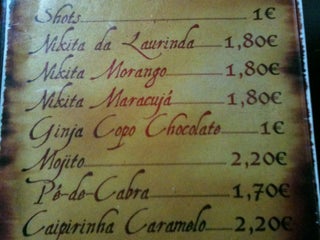 Shots 1€
Nikita da Laurinda 1,80€
Nikita Morango 1,80€
Nikita Maracujá 1,80€
Ginja Copo Chocolate 1€
Mojito 2,20€
Pé-de-Cabra 1,70€
Caipirinha Caramelo 2,20€